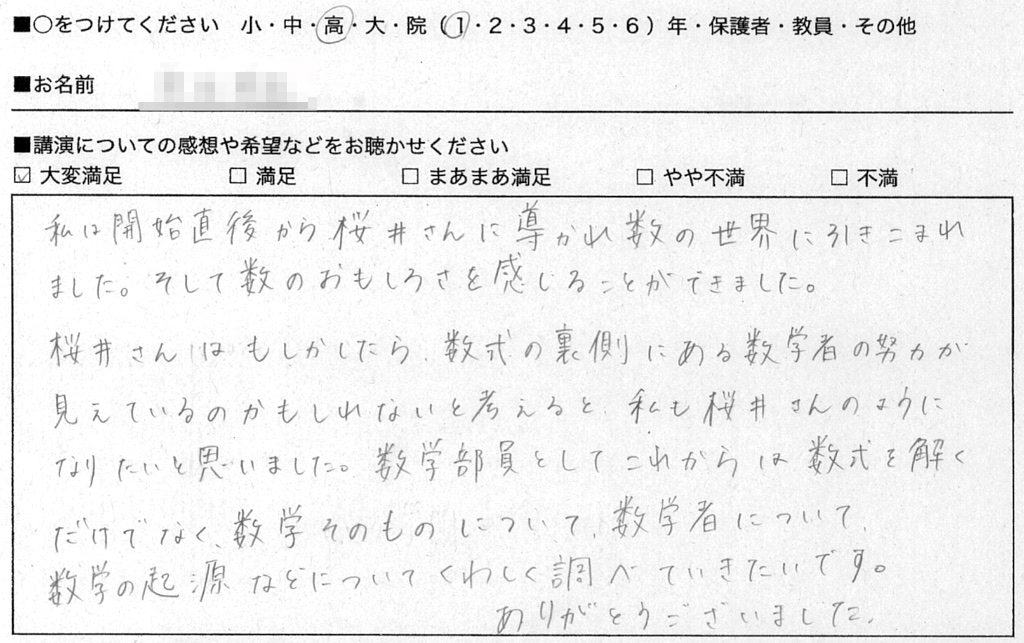 ■○をつけてください 小・中・高・大・院（1・2・3・4・5・6）年・保護者・教員・その他
■お名前
■講演についての感想や希望などをお聴かせください
☑ 大変満足 □ 満足 □ まあまあ満足 □ やや不満 □ 不満
私は開始直後から桜井さんに導かれ数の世界に引きこまれ
ました。そして数のおもしろさを感じることができました。
桜井さんはもしかしたら、数式の裏側にある数学者の努力が
見えているのかもしれないと考えると、私も桜井さんのように
なりたいと思いました。数学部員としてこれからは数式を解く
だけでなく、数学そのものについて、数学者について、
数学の起源などについてくわしく調べていきたいです。
ありがとうございました。